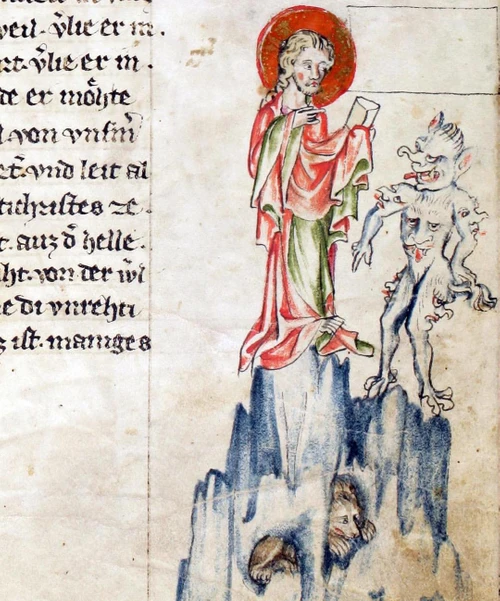 weil. v̊lie er in.
v̊lie er in.
de er möhte
von vnsin̄
vnd leit al
tichristes ze.
t. auz d̕ helle.
ht. von der wi
e di vnrehti
s ist. maniges